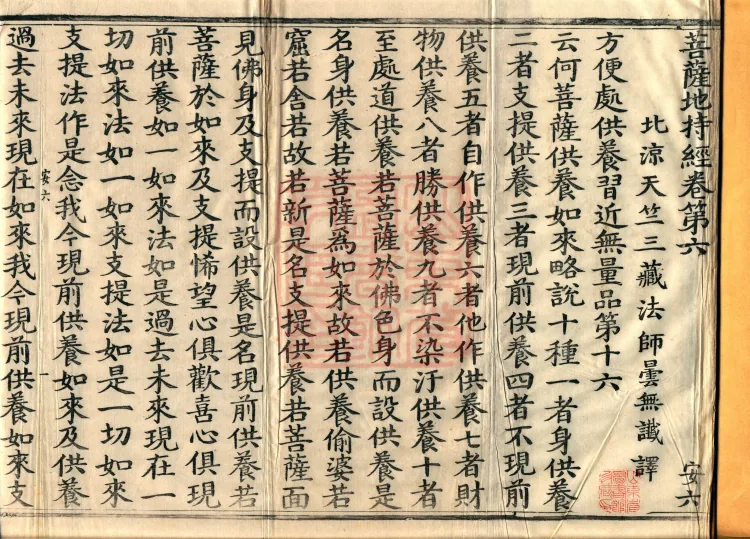 菩薩地持經卷第六
安六
北涼天竺三藏法師曇無讖譯
方便處供養習近無量品第十六
云何菩薩供養如來略說十種一者身供養
二者支提供養三者現前供養四者不現前
供養五者自作供養六者他作供養七者財
物供養八者勝供養九者不染汙供養十者
至處道供養若菩薩於佛色身而設供養是
名身供養若菩薩為如來故若供養偷婆若
窟若舍若故若新是名支提供養若菩薩面
見佛身及支提而設供養是名現前供養若
菩薩於如來及支提悕望心俱歡喜心俱現
前供養如一如來法如是過去未來現在一
切如來法如一如來支提法如是一切如來
支提法作是念我今現前供養如來及供養
安六
一
過去未來現在如來我今現前供養如來支